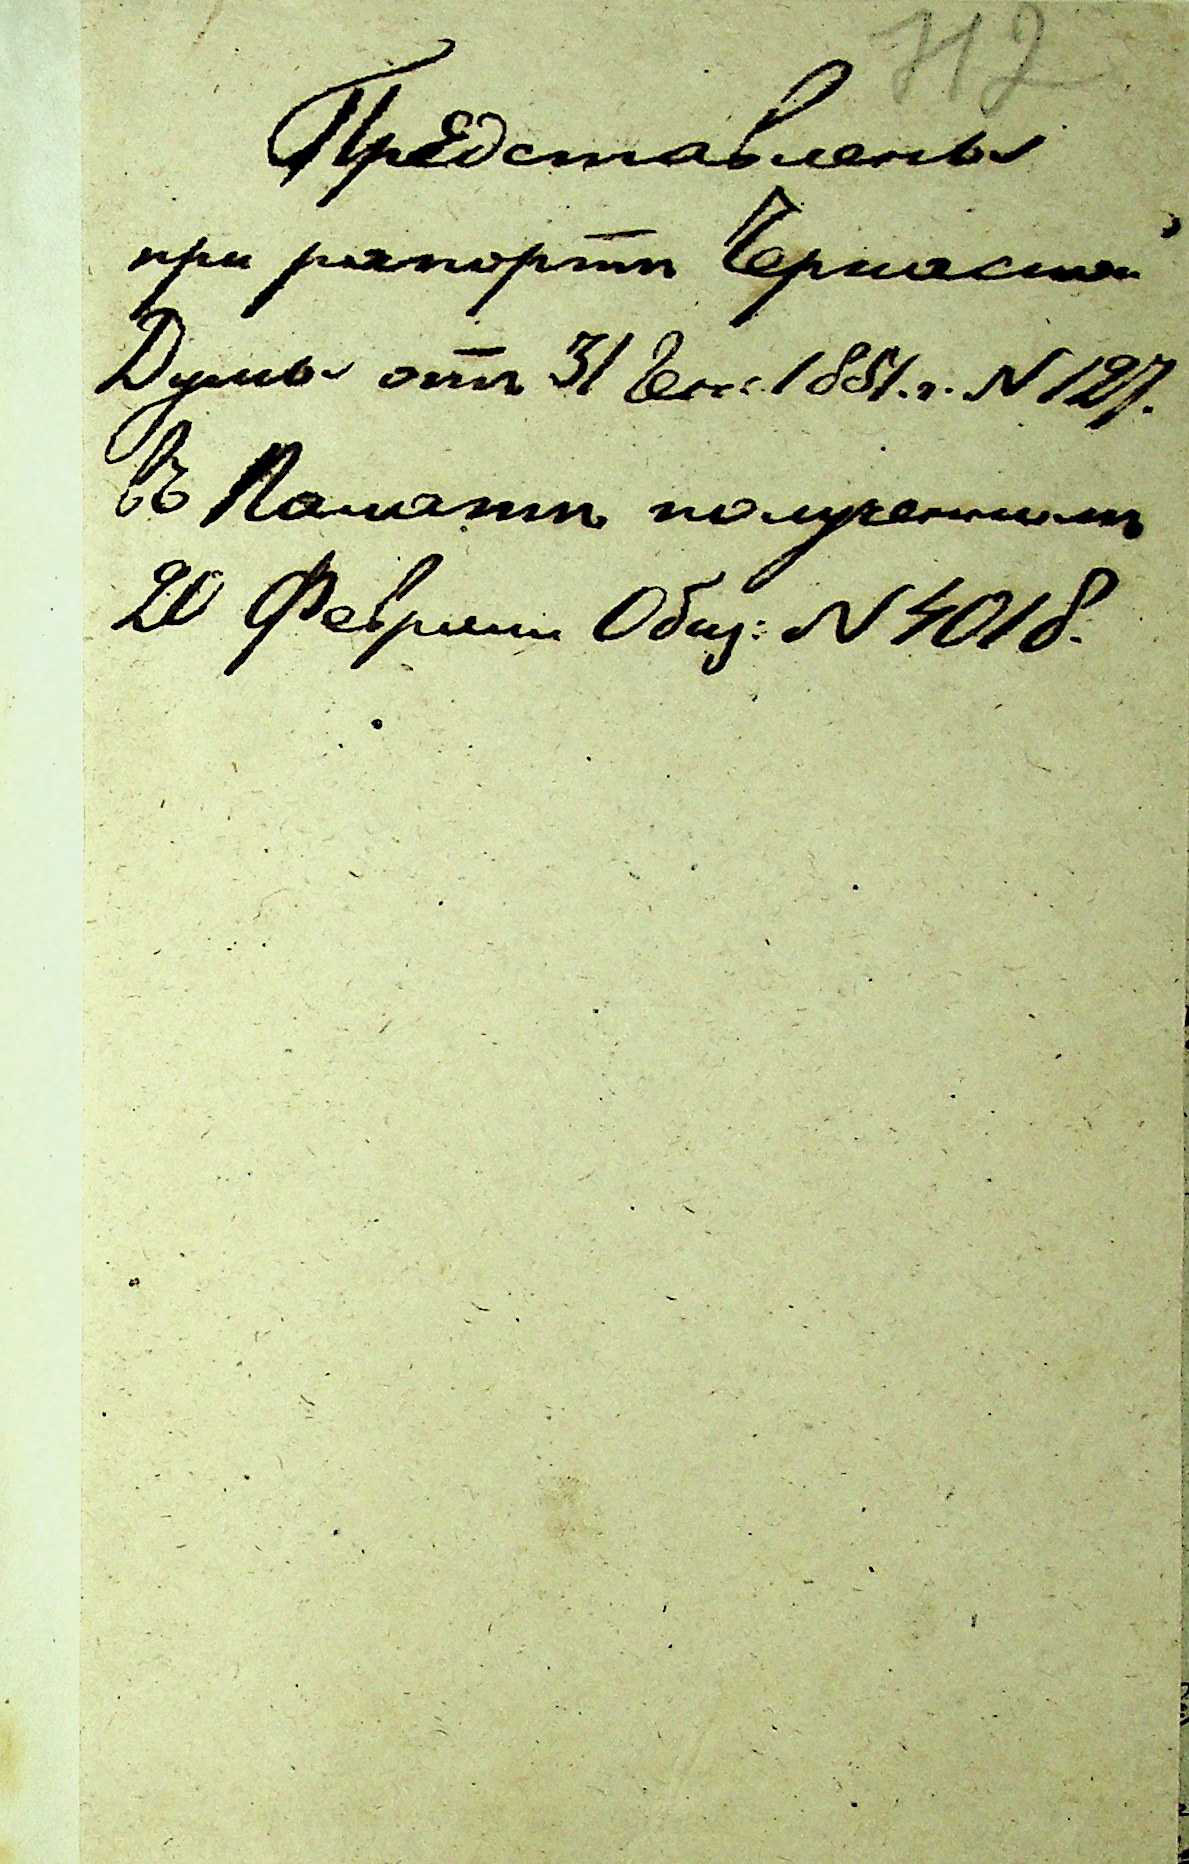 112
Представлены
при рапортѣ Черкаской
Думы отъ 31 Генв: 1851. г. N 127.
Въ Палатѣ полученномъ
20 Февраля Общ: N 4018.